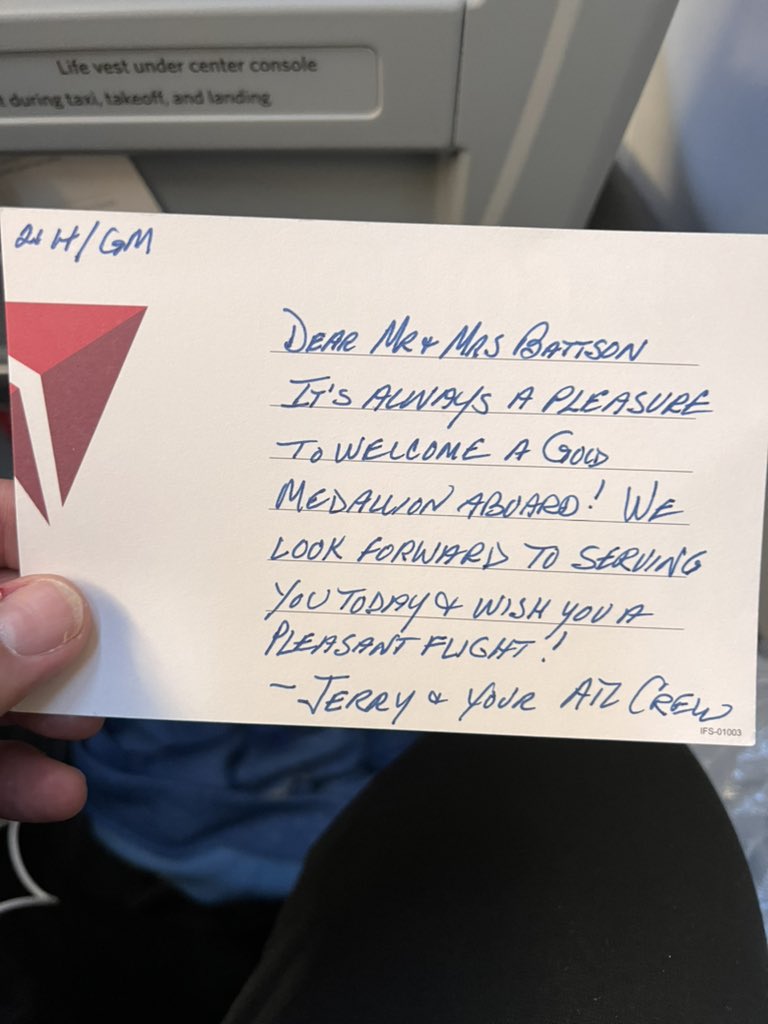 Life vest under center console
t during taxi, takeoff, and landing
21 H/GM
DEAR MR & MRS BATTSON
IT'S ALWAYS A PLEASURE
TO WELCOME A GOLD
MEDALLION ABOARD! WE
LOOK FORWARD TO SERVING
YOU TODAY & WISH YOU A
PLEASANT FLIGHT!
- JERRY & YOUR ATL CREW
IFS-01003